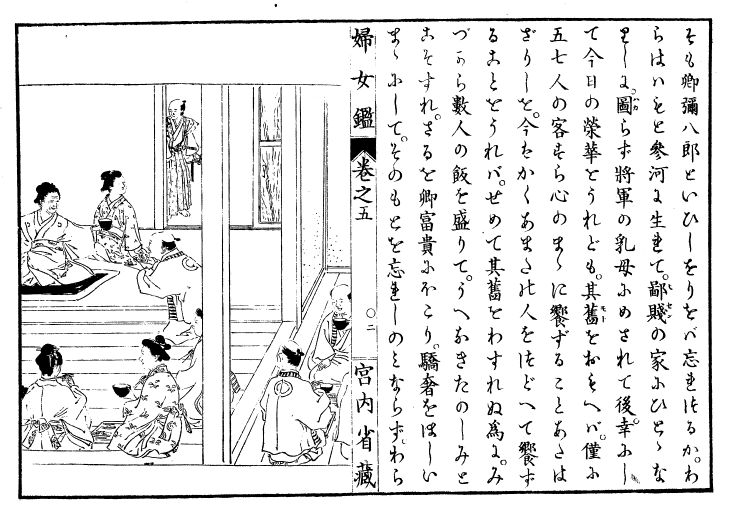 そも卿彌八郎といひしをりをバ忘れつるか。わ
らはハもと參河に生れて。鄙賤の家にひとゝな
りしに。圖らず將軍の乳母にめされて後。幸にし
て今日の榮華をうれども。其舊をおもへバ。僅に
五七人の客すら心のまゝに饗ずることあたは
ざりしを。今はかくあまたの人をつどへて饗す
ることをうれバ。せめて其舊をわすれぬ爲に。み
づから數人の飯を盛りて。うへなきたのしみと
こそすれ。さるを卿富貴にほこり。驕奢をほしい
まゝにして。そのもとを忘れしのミならず。わら
婦女鑑 卷之五 〇二 宮内省藏